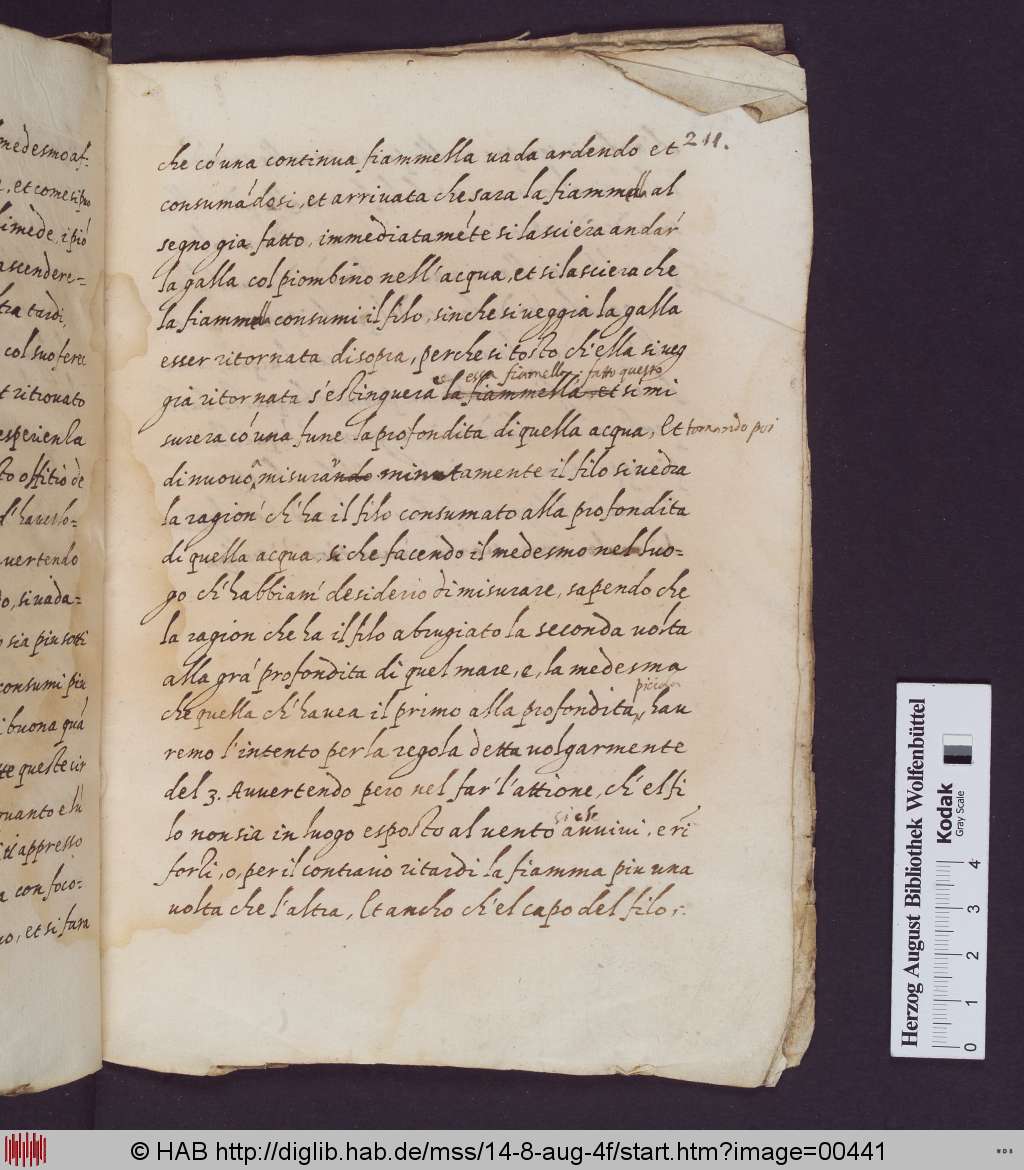 211.
che có una continua fiammella uada ardendo et
consumádosi, et arrivata che sara la fiammella al
segno gia fatto, immèdiataméte si lasciera andar
la galla col piombino nell'acqua, et si lasciera che
la fiammella consumi il filo, sinche si veggia la galla
esser ritornata di sopra, perche si tosto ch'ella si veg
essa fiamella: fatto questo
gia ritornata s'estinguera la fiammella et si mi
surera có una fune la profondita di quella acqua, Et tornando poi
di nuovo misurando minutamente il filo si vedra
la ragion ch'ha il filo consumato alla profondita
di quella acqua, si che facendo il medesmo nel luo=
go ch'habbiam desiderio di misurare, sapendo che
la ragion che ha il filo abrugiato la seconda uolta
alla grá profondita di quel mare, è, la medesma
che quella ch'havea il primo alla profondita, hau
remo l'intento per la regola detta uolgarmente
del 3. Auuertendo pero nel far l'attione, ch'el fi
lo non sia in luogo esposto al uento auuiui, e rī
forti, o, per il contrario ritardi la fiamma piu una
uolta che l'altra, Et ancho ch'el capo del filo,
medesmo af-
, et come si puo
imède, i pió
ascendere=
tra tardi,
col suo ferec
et ritrouato
esperienza
to offitio dè
d'hauerlo-
uertendo
do, si uada=
o sia piu sotti
consumi piu
i buona quá
te queste cir
quanto e lú
i il appresso
a con foco-
uo, et si fara
Herzog August Bibliothek Wolfenbüttel
Kodak
Gray Scale
0 1 2 3 4
© HAB http://diglib.hab.de/mss/14-8-aug-4f/start.htm?image=00441